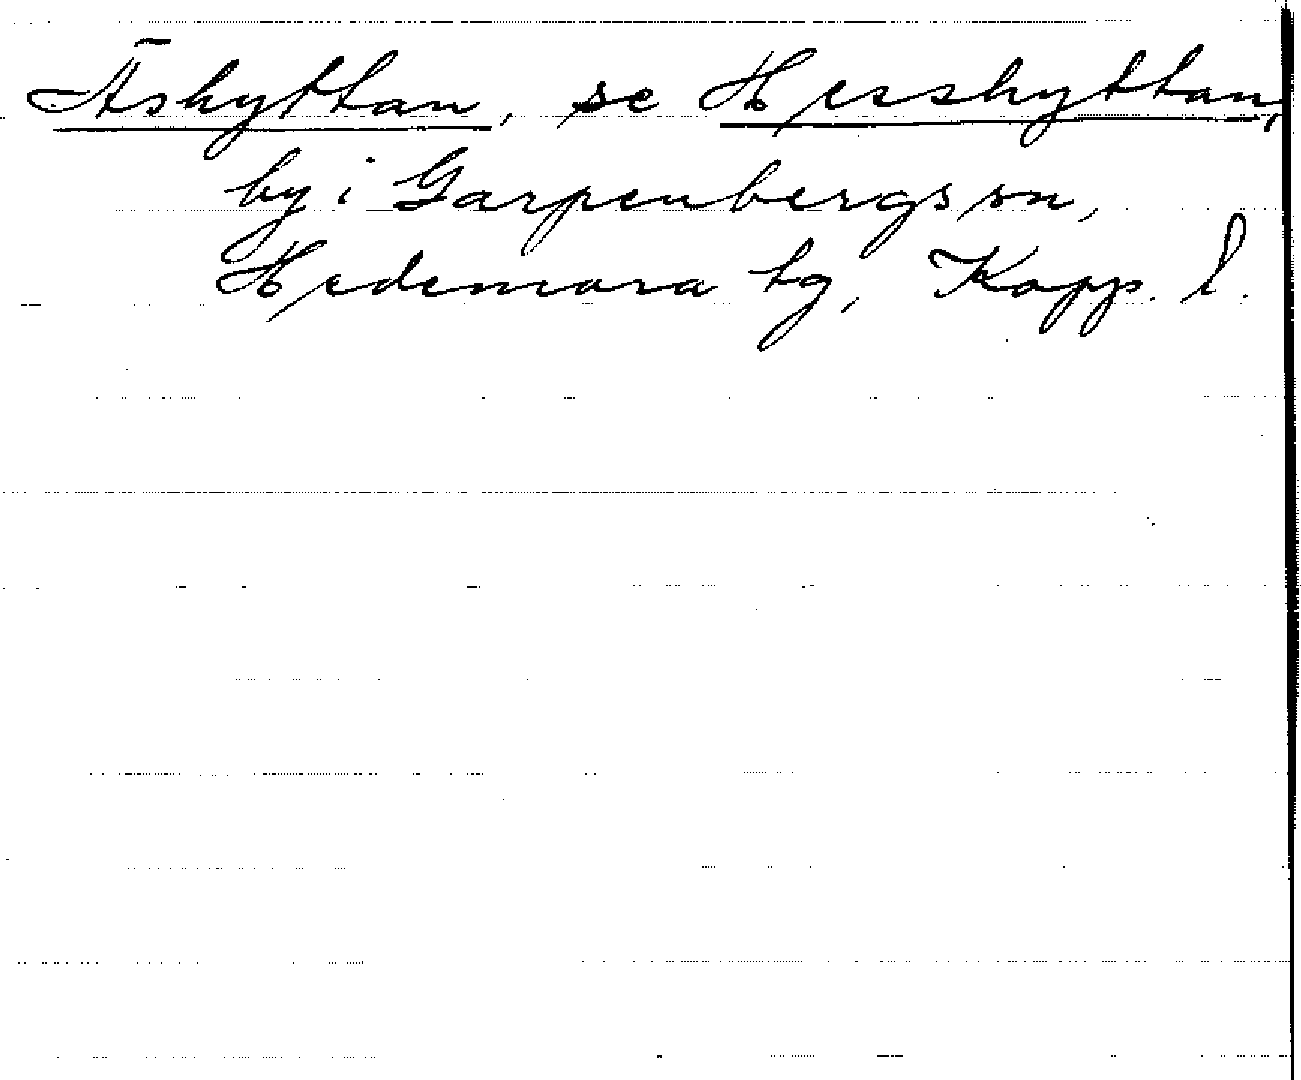 Äshyttan, se Hesshyttan,
by i Garpenbergs sn,
Hedemora tg, Kopp. l.